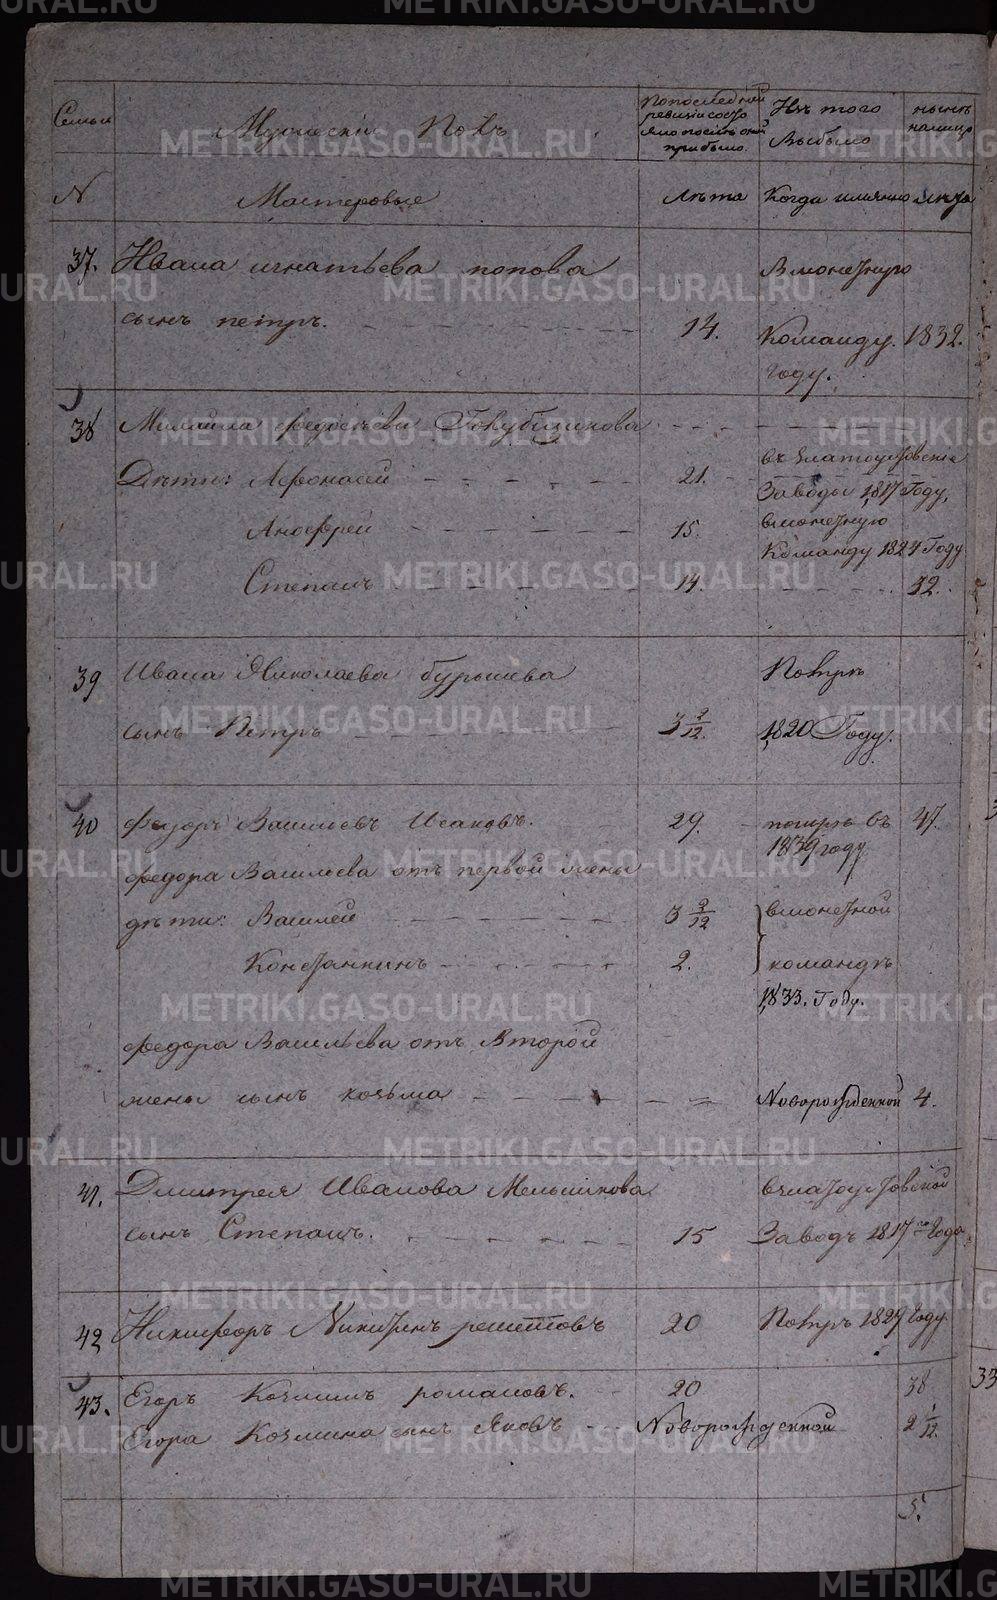 METRIKI.GASO-URAL.RU
Семьи
Мужескiй Полъ
Попоследней ревизiи состо яло после оной прибыло.
Изъ того Выбыло
нынѣ налицо
N
Мастеровые
Лѣта
Когда имянно
Лѣта
37. Ивана игнатьева попова
Вмонетную
сынъ петръ. 14. Команду. 1832.
году.
38 Михайла федосѣева Голубщикова
Дѣти: Афонасей 21. въ Златоустовские Заводы 1817 Году,
Андрей 15. вмонетную Команду 1824 Году
Степанъ 14. 32.
39 Ивана Николаева бурышева
Помръ
сынъ Петръ 3 9/12. 1820 Году.
40 Федоръ Васильевъ Исаковъ. 29. померъ въ 1839 году 47.
федора Васильева отъ первой жены
дѣти: Василей 3 9/12 вмонетной
Констанкинъ 2. командѣ
1833. Году.
федора Васильева отъ Второй
жены сынъ козьма Новорожденной 4.
41. Дмитрея Иванова Мельникова
взлатоустовской
сынъ Степанъ. 15 Заводъ 1817го Года
42 Никифоръ Никитинъ решетовъ 20 Помръ 1827 Году.
43. Егоръ Козминъ романовъ. 20 38
Егора Козмина сынъ Яковъ Новорожденной 2 1/12.
5.
33